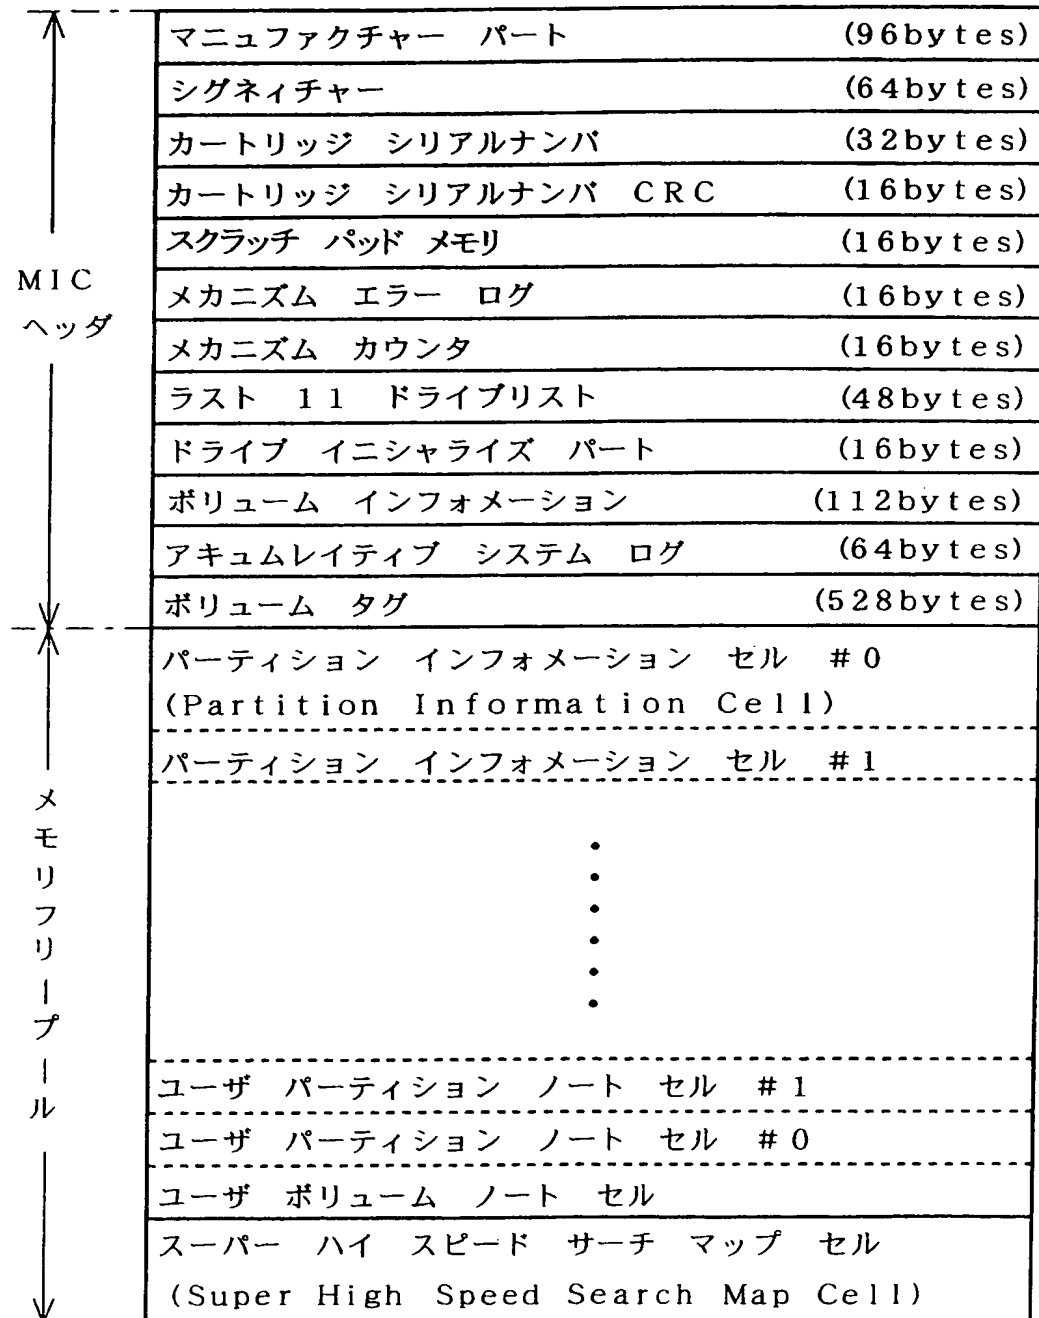 マニュファクチャー パート (96bytes)
シグネィチャー (64bytes)
カートリッジ シリアルナンバ (32bytes)
カートリッジ シリアルナンバ CRC (16bytes)
スクラッチ パッド メモリ (16bytes)
MIC
ヘッダ
メカニズム エラー ログ (16bytes)
メカニズム カウンタ (16bytes)
ラスト 11 ドライブリスト (48bytes)
ドライブ イニシャライズ パート (16bytes)
ボリューム インフォメーション (112bytes)
アキュムレイティブ システム ログ (64bytes)
ボリューム タグ (528bytes)
メモリフリープール
パーティション インフォメーション セル #0
(Partition Information Cell)
パーティション インフォメーション セル #1
ユーザ パーティション ノート セル #1
ユーザ パーティション ノート セル #0
ユーザ ボリューム ノート セル
スーパー ハイ スピード サーチ マップ セル
(Super High Speed Search Map Cell)